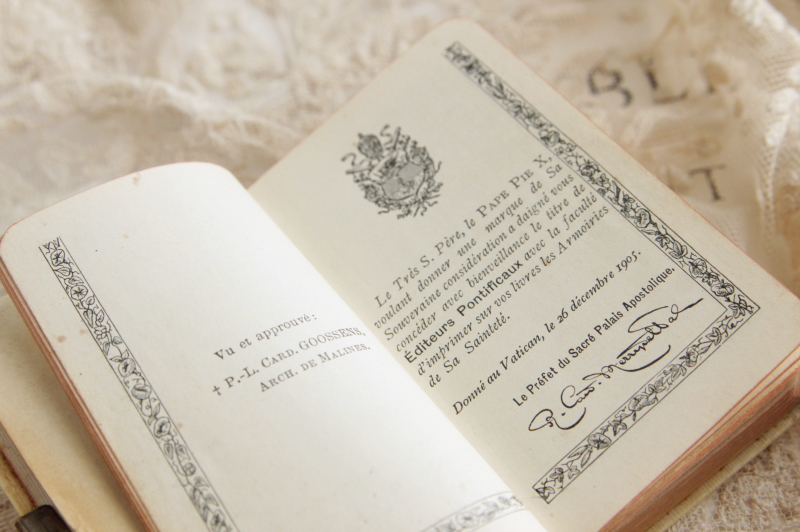 Vu et approuvé:
† P.-L. CARD. GOOSSENS,
ARCH. DE MALINES.
Le Très S. Père, le PAPE PIE X,
voulant donner une marque de Sa
Souveraine considération a daigné vous
concéder avec bienveillance le titre de
Éditeurs Pontificaux avec la faculté
d'imprimer sur vos livres les Armoiries
de Sa Sainteté.
Donné au Vatican, le 26 décembre 1905.
Le Préfet du Sacré Palais Apostolique.